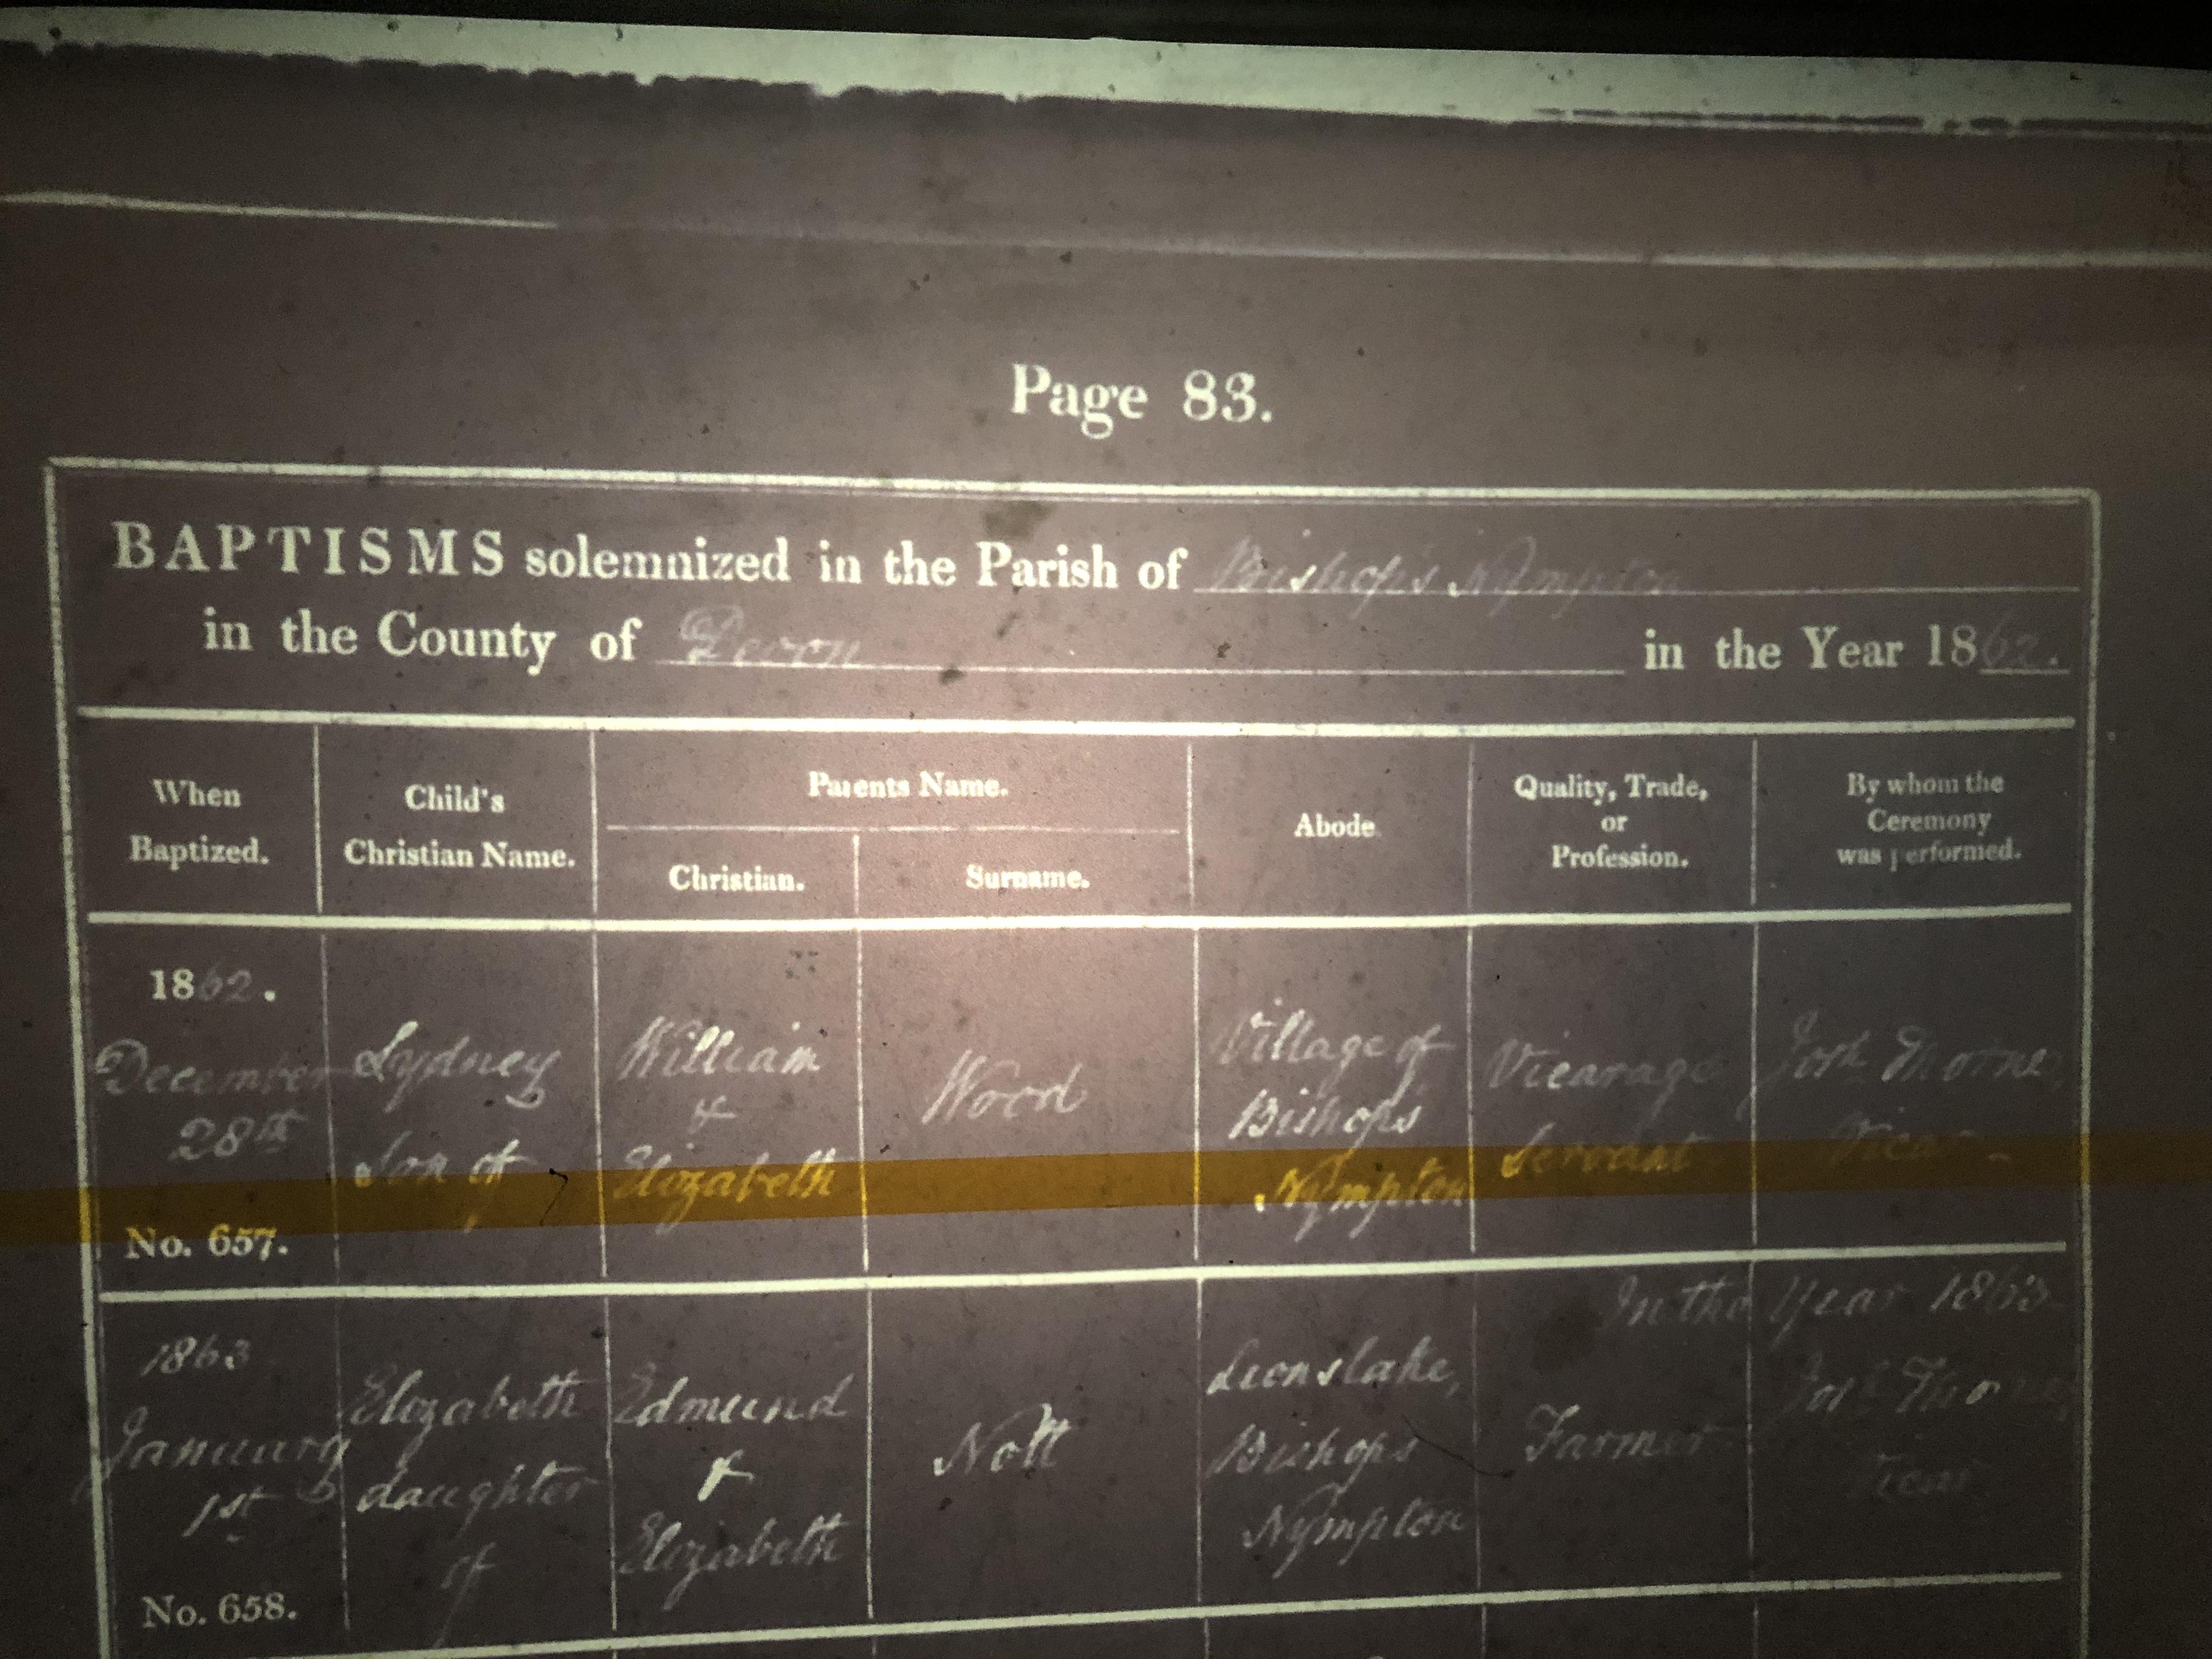 Page 83.
BAPTISMS solemnized in the Parish of Bishop's Nympton
in the County of Devon in the Year 1862.
When Baptized.
Child's Christian Name.
Parents Name.
Christian.
Surname.
Abode
Quality, Trade, or Profession.
By whom the Ceremony was performed.
1862.
December 28th
No. 657.
Sydney
Son of
William
&
Elizabeth
Wood
Village of
Bishops
Nympton
Vicarage
Servant
Josh Thorne,
Vicar
In the Year 1863
1863
January
1st
No. 658.
Elizabeth
daughter
of
Edmund
&
Elizabeth
Nott
Lionslake,
Bishops
Nympton
Farmer
Josh Thorne,
Vicar